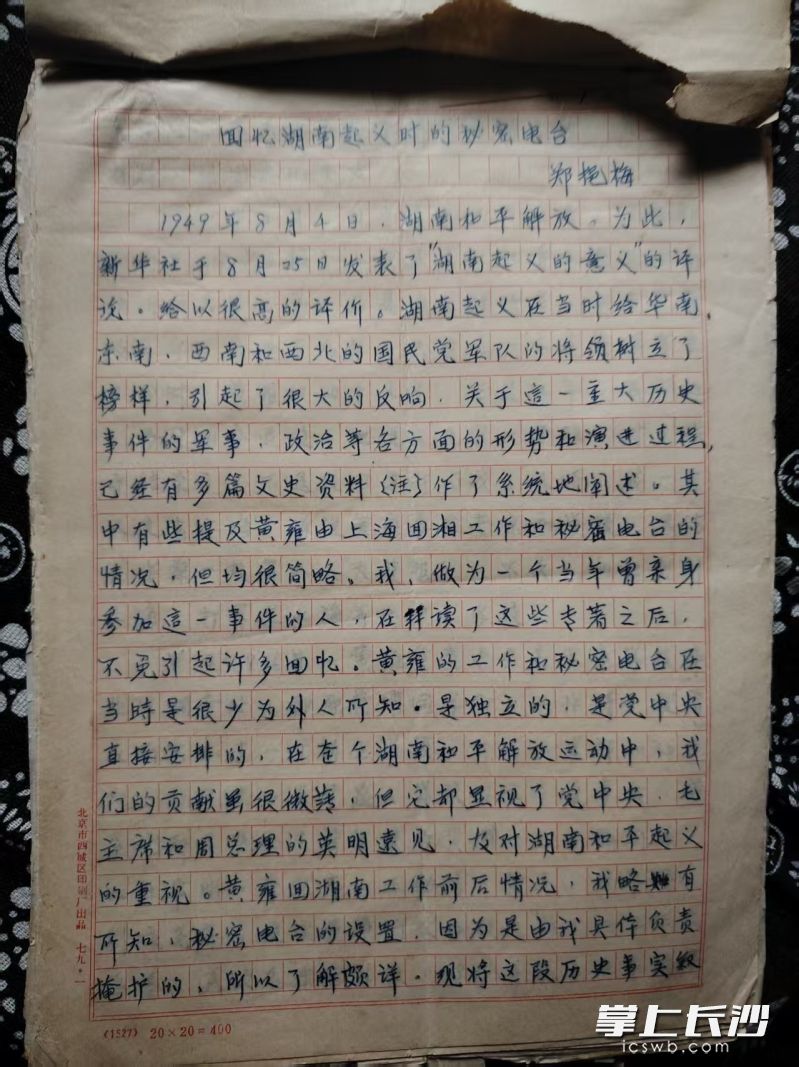 回忆湖南起义时的秘密电台
郑艳梅
1949年8月4日，湖南和平解放。为此，
新华社于8月25日发表了"湖南起义的意义"的评
说。给以很高的评价。湖南起义在当时给华南，
东南、西南和西北的国民党军队的将领树立了
榜样，引起了很大的反响，关于這一重大历史
事件的军事、政治等各方面的形势和演进过程，
已经有多篇文史资料（注）作了系统地阐述。其
中有些提及黄雍由上海回湘工作和秘密电台的
情况，但均很简略。我，做为一个当年曾亲身
参加這一事件的人，在拜读了这些专著之后，
不免引起许多回忆。黄雍的工作和秘密电台在
当時是很少为外人所知。是独立的，是党中央
直接安排的，在整个湖南和平解放运动中，我
们的贡献虽很微薄，但它都显视了党中央、毛
主席和周总理的英明遠见，及对湖南和平起义
的重视。黄雍回湖南工作前后情况，我略有
所知，秘密电台的设置，因为是由我具体负责
掩护的，所以了解颇详。现将这段历史事实叙
北京市西城区印刷厂出品 七九·一
(1527) 20×20=400
掌上长沙
icswb.com